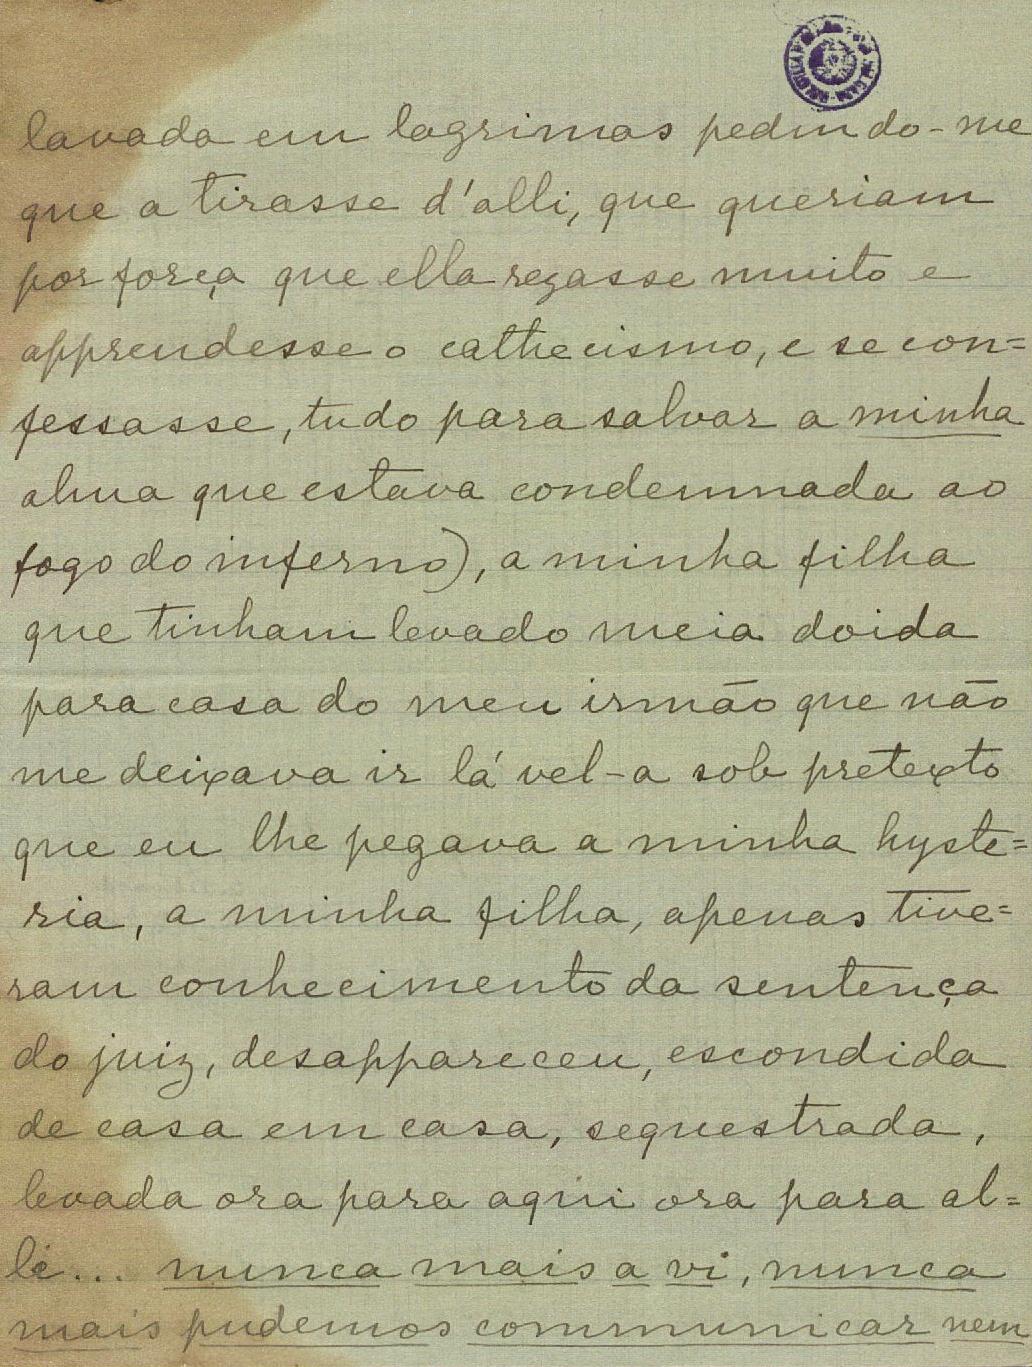 lavada em lagrimas pedindo-me
que a tirasse d'alli, que queriam
por força que ella regasse muito e
apprendesse o cathecismo, e se con=
fessasse, tudo para salvar a minha
alma que estava condemnada ao
fogo do inferno), a minha filha
que tinham levado meia doida
para casa do meu irmão que não
me deixava ir lá vel-a sob pretexto
que eu lhe pegava a minha hyste=
ria, a minha filha, apenas tive=
ram conhecimento da sentença
do juiz, desappareceu, escondida
de casa em casa, sequestrada,
levada ora para aqui ora para al=
li... nunca mais a vi, nunca
mais pudemos communicar nem